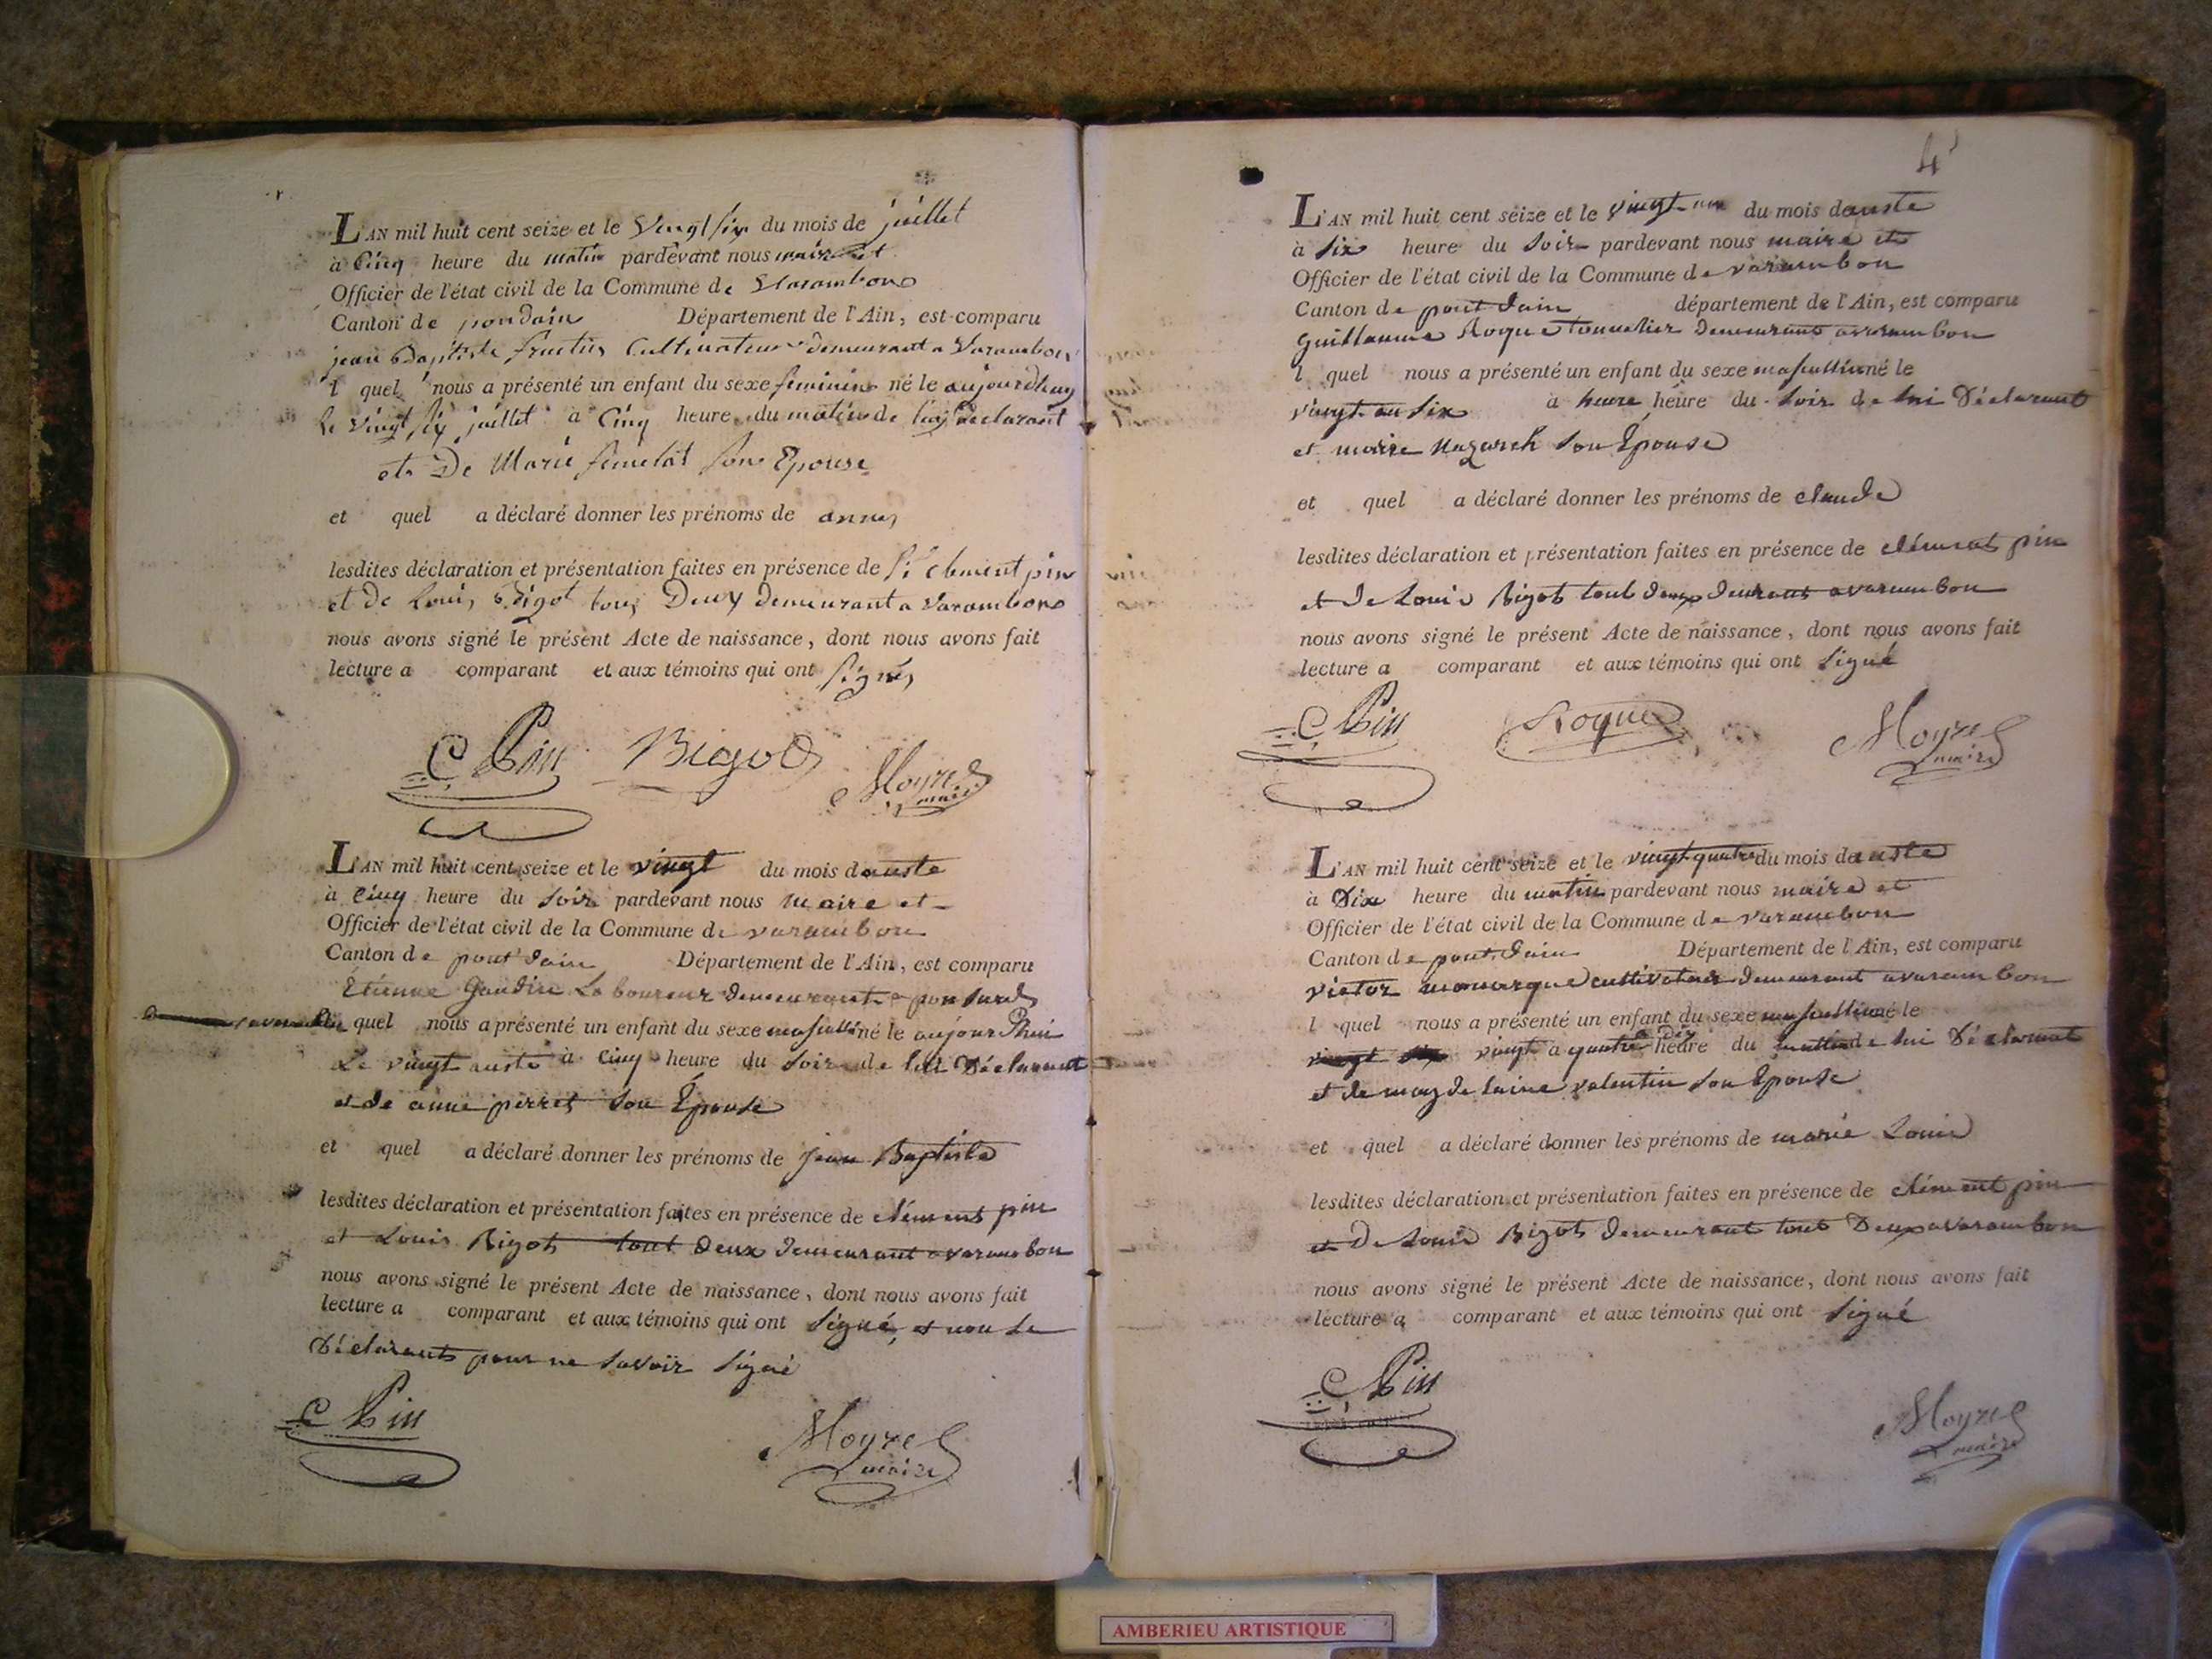 L'AN mil huit cent seize et le Vingt six du mois de juillet
à Cinq heure du matin pardevant nous maire et
Officier de l'état civil de la Commune de Varambons
Canton de pondain Département de l'Ain, est comparu
jean Baptiste Cultivateur demeurant a Varambon
l quel nous a présenté un enfant du sexe feminin né le aujourdhuy
le vingt six juillet à Cinq heure du matin de luy declarant
et De Marie femelat son Epouse
et quel a déclaré donner les prénoms de anne
lesdites déclaration et présentation faites en présence de Sr clement pin
et de Louis Bigot tous Deux demeurant a Varambons
nous avons signé le présent Acte de naissance, dont nous avons fait
lecture a comparant et aux témoins qui ont signés
C Pin Bigot Moyret maire
L'AN mil huit cent seize et le vingt du mois d auste
à Cinq heure du soir pardevant nous maire et
Officier de l'état civil de la Commune de varambon
Canton de pont dain Département de l'Ain, est comparu
Étienne Gaudin Laboureur demeurant a
l quel nous a présenté un enfant du sexe masculin né le aujour Dhui
Le vingt auste à Cinq heure du soir de lui Déclarant
et de anne perret son Épouse
et quel a déclaré donner les prénoms de jean Baptiste
lesdites déclaration et présentation faites en présence de clément pin
et Louis Bigot tout Deux demeurant a varambon
nous avons signé le présent Acte de naissance, dont nous avons fait
lecture a comparant et aux témoins qui ont signé, et non le
Déclarants pour ne savoir signé
C Pin Moyret maire
4
L'AN mil huit cent seize et le vingt un du mois d auste
à six heure du soir pardevant nous maire et
Officier de l'état civil de la Commune de varambon
Canton de pont dain département de l'Ain, est comparu
guillaume Roque tonnelier demeurant a varambon
l quel nous a présenté un enfant du sexe masculin né le
vingt un six à heure heure du soir de lui Déclarant
et marie son Épouse
et quel a déclaré donner les prénoms de claude
lesdites déclaration et présentation faites en présence de clément pin
et de Louis Bigot tout deux a varambon
nous avons signé le présent Acte de naissance, dont nous avons fait
lecture a comparant et aux témoins qui ont signé
C Pin Roque Moyret maire
L'AN mil huit cent seize et le vingt quatre du mois d auste
à Dix heure du matin pardevant nous maire et
Officier de l'état civil de la Commune de varambon
Canton de pont dain Département de l'Ain, est comparu
victor cultivateur demeurant a varambon
l quel nous a présenté un enfant du sexe masculin né le
vingt à quatre à dix heure du matin de lui Déclarant
et de magdelaine valentin son Épouse
et quel a déclaré donner les prénoms de marie Louis
lesdites déclaration et présentation faites en présence de clément pin
et de Louis Bigot demeurant tout Deux a varambon
nous avons signé le présent Acte de naissance, dont nous avons fait
lecture a comparant et aux témoins qui ont signé
C Pin Moyret maire
AMBERIEU ARTISTIQUE